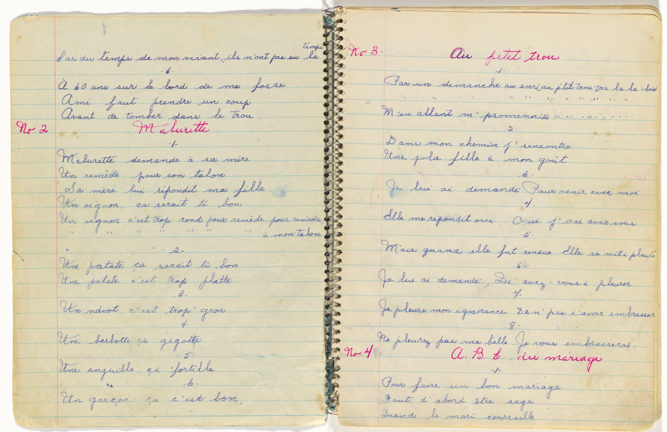 temps
Car du temps de mon vivant, ils n'ont pas eu le
6
À 60 ans sur le bord de ma fosse
Ami faut prendre un coup
Avant de tomber dans le trou.
No 2 Malurette
1
Malurette demande à sa mère
Un remède pour son talon
Sa mère lui répondit ma fille
Un oignon, ca serait ti bon
Un oignon c'est trop rond pour remède pour remède
" " " " " " " à mon talon
2
Une patate ca serait ti bon
Une patate c'est trop platte
3
Un navot c'est trop gros
4
Une berbotte ca gigotte
5
Une anguille, ca fortille
" 6
Un garçon ca c'est bon.
No 3. Au petit trou
1
Par un dimanche au soir, au ptit trou la la bis
M'en allant m' promener (2)
2
Dans mon chemin j'rencontre
Une jolie fille à mon goût
3
Je lui ai demandé Pour venir avec moi
4
Elle me répondit oui Oui j'irai avec vous
5
Mais quand elle fut rendue Elle se mit à pleurer
6
Je lui ai demandé, Qu'avez-vous à pleurer
7
Je pleure mon ignorance De n' pas s'avoir embrasser
8
Ne pleurez pas ma belle Je vous embrasserai.
No. 4 A. B. C. du mariage
1
Pour faire un bon mariage
Faut d'abord être sage
Quand le mari courraille